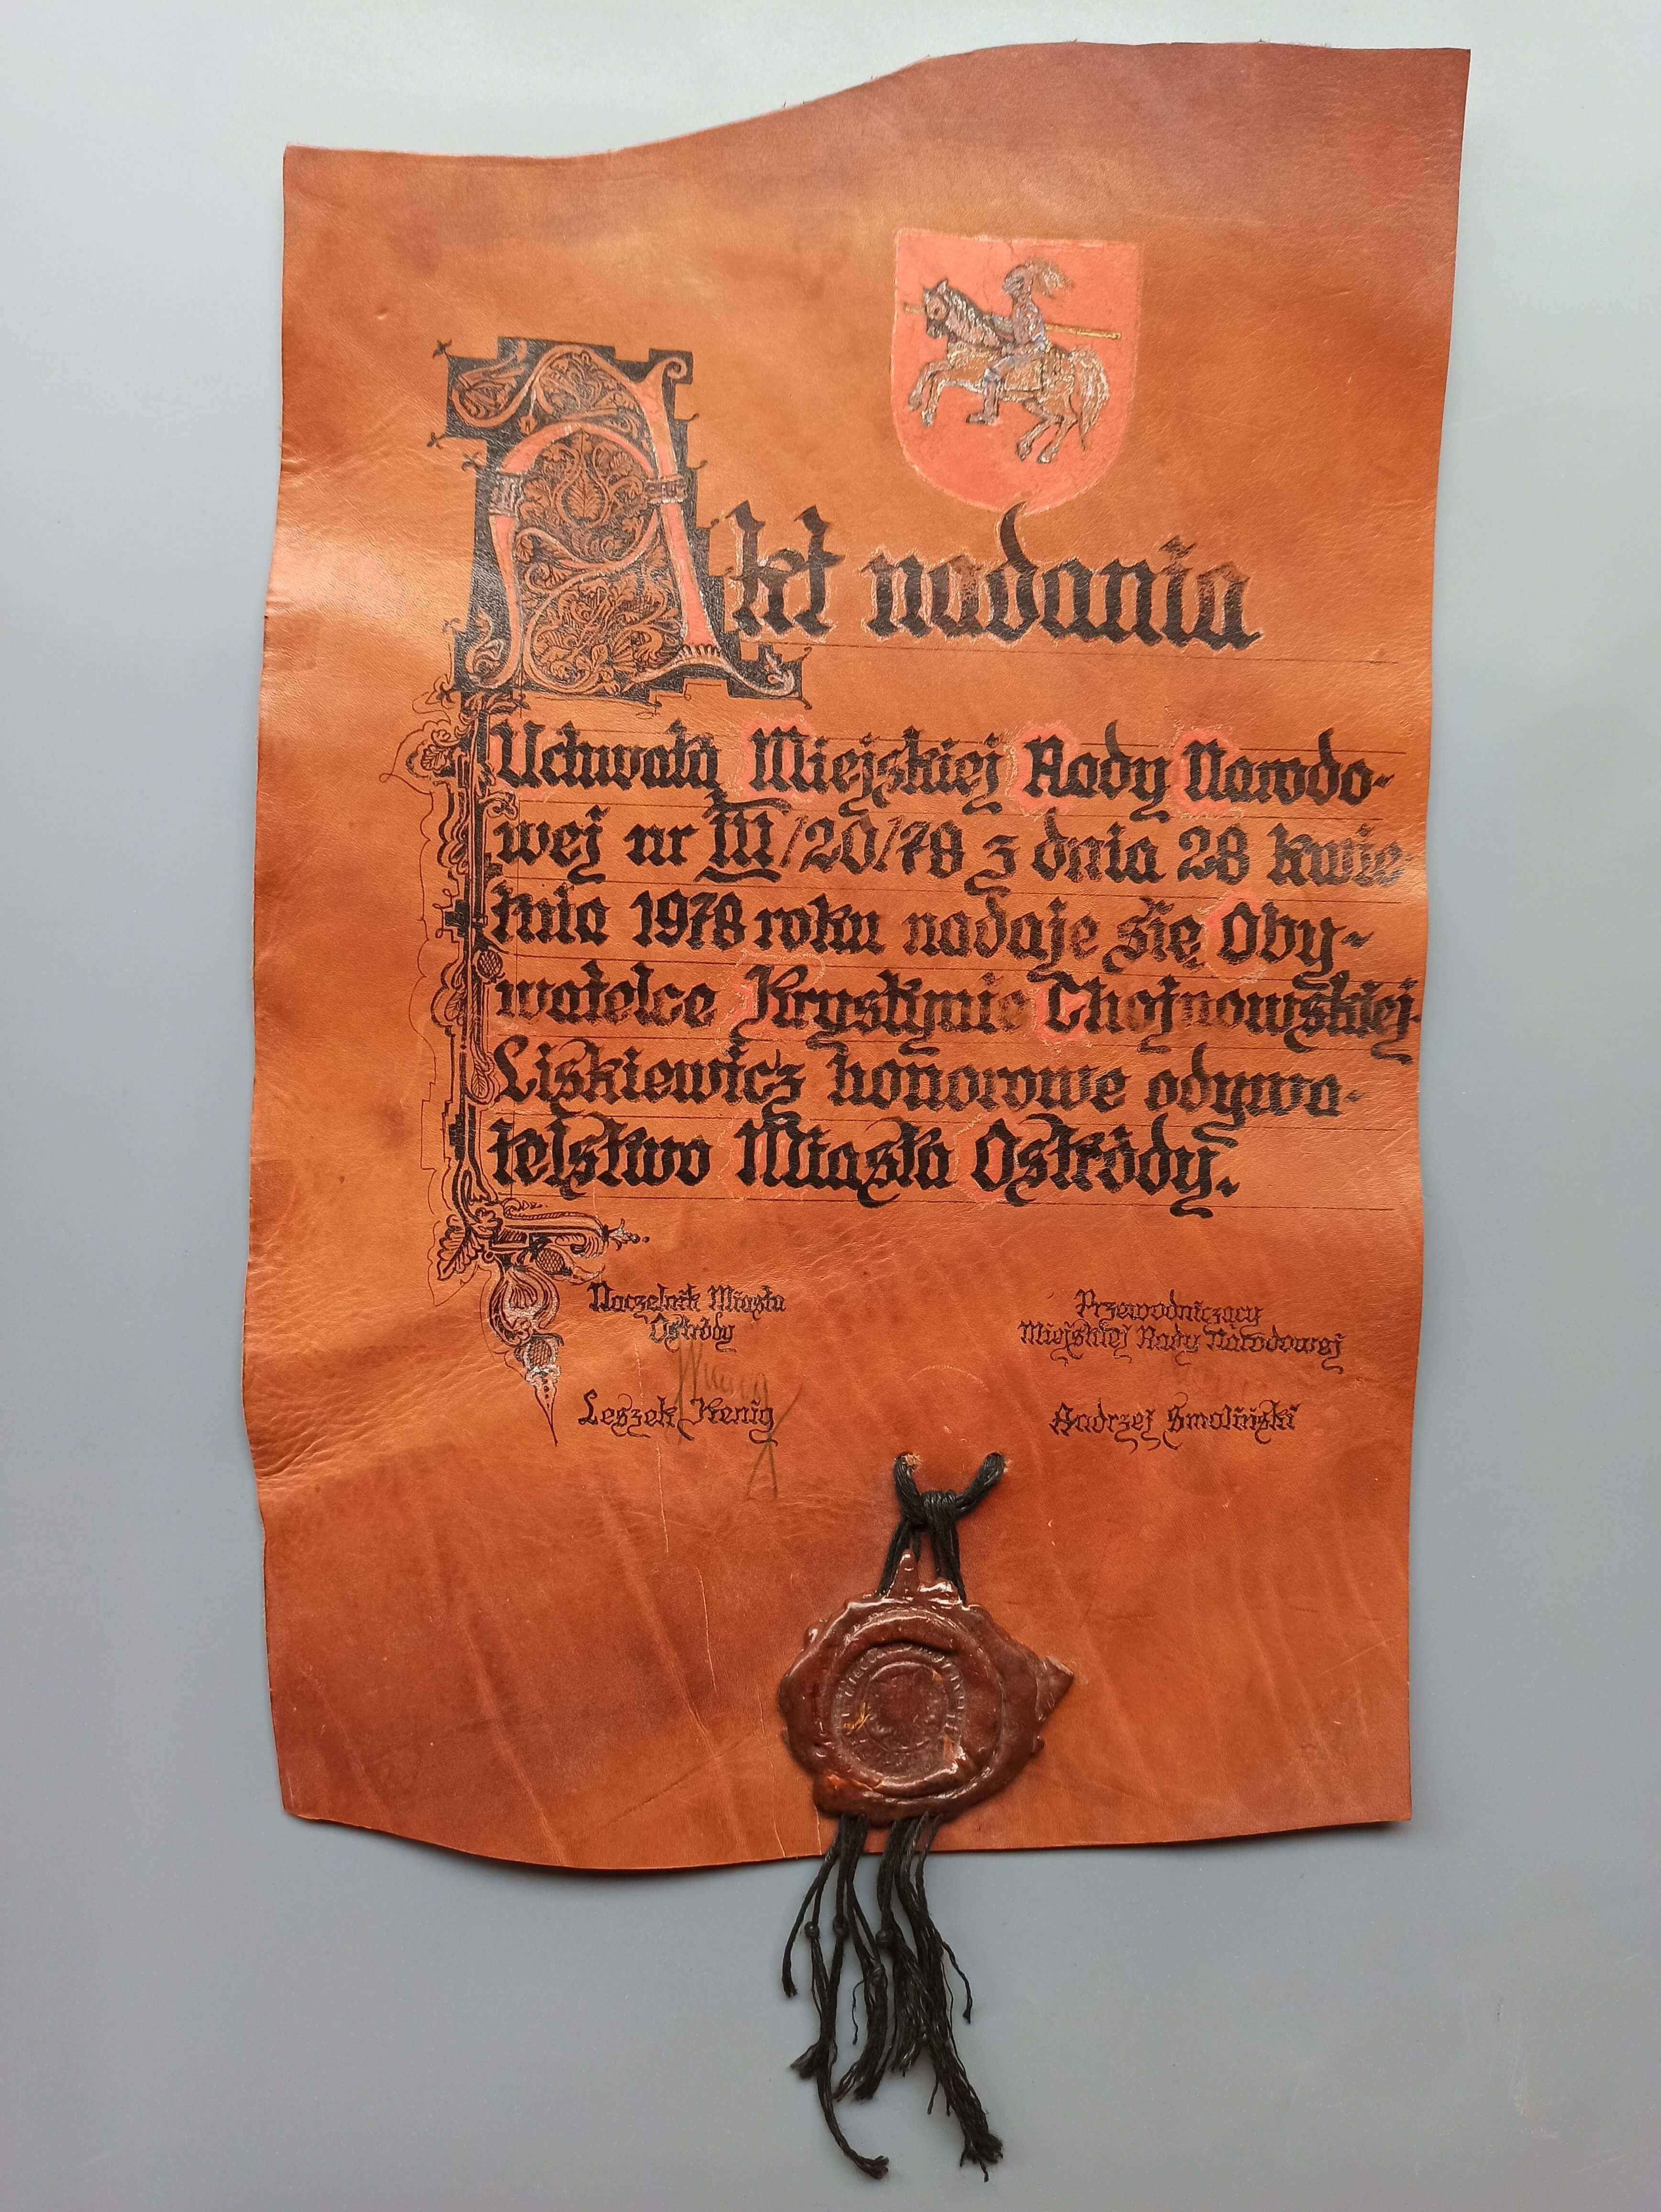 Akt nadania
Uchwałą Miejskiej Rady Narodo-
wej nr III/20/78 z dnia 28 kwie
tnia 1978 roku nadaje się Oby-
watelce Krystynie Chojnowskiej-
Liskiewicz honorowe odywa-
telstwo Miasta Ostródy.
Naczelnik Miasta
Ostródy
Leszek Kenig
Przewodniczący
Miejskiej Rady Narodowej
Andrzej Smoliński